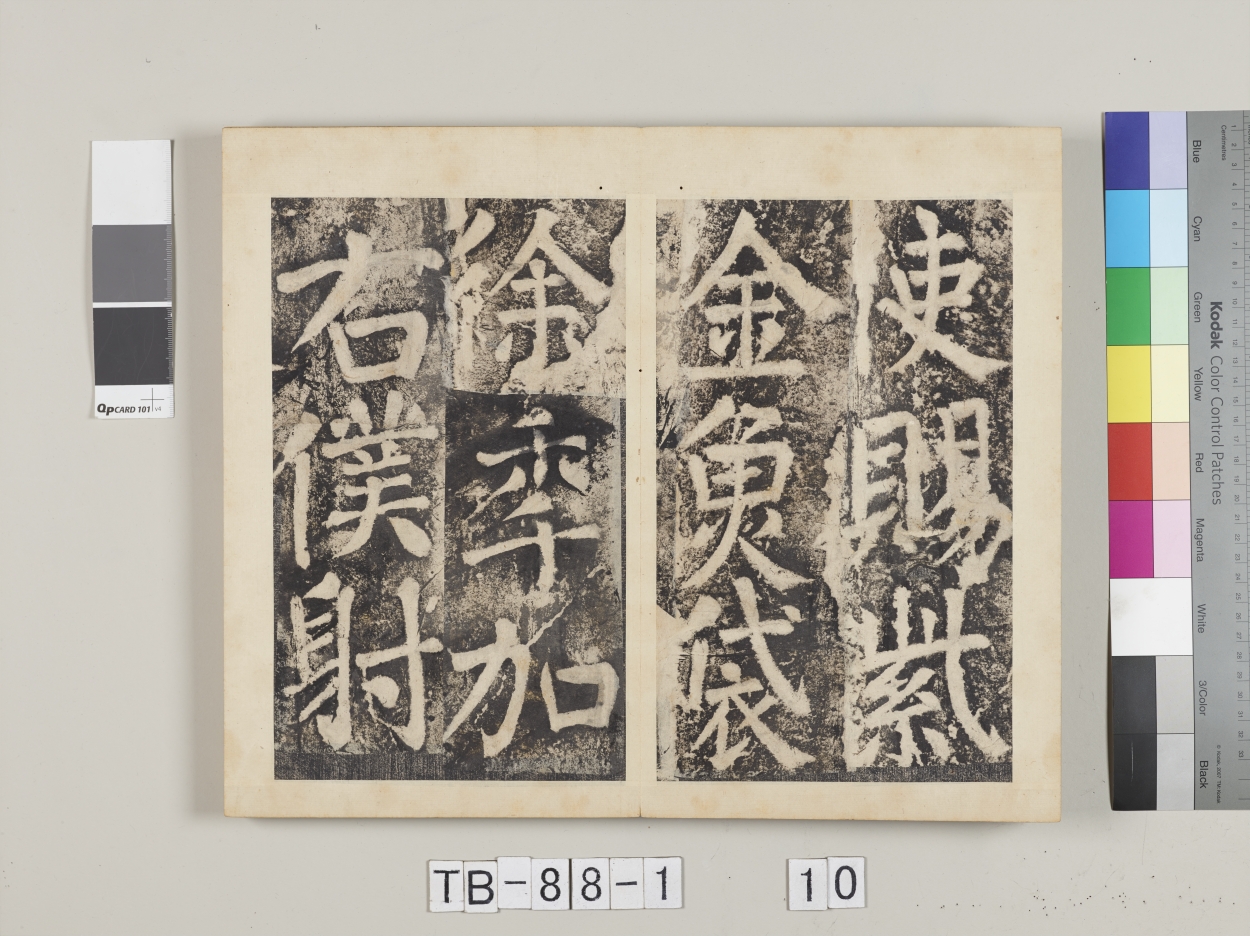 使賜紫
金魚袋
徐秊加
右僕射
Centimetres
Blue
Cyan
Green
Yellow
Red
Magenta
White
3/Color
Black
Kodak Color Control Patches
QpCARD 101 v4
TB-88-1 10